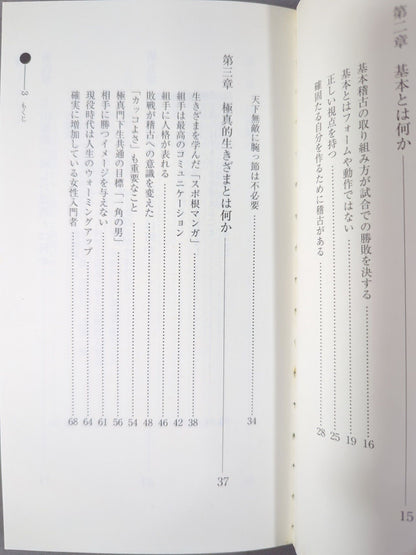 第二章 基本とは何か 15
基本稽古の取り組み方が試合での勝敗を決する 16
基本とはフォームや動作ではない 19
正しい視点を持つ 25
確固たる自分を作るために稽古がある 28
天下無敵に腕っ節は不必要 34
第三章 極真的生きざまとは何か 37
生きざまを学んだ「スポ根マンガ」 38
組手は最高のコミュニケーション 42
組手に人格が表れる 46
敗戦が稽古への意識を変えた 48
「カッコよさ」も重要なこと 54
極真門下生共通の目標「一角の男」 56
相手に勝つイメージを与えない 61
現役時代は人生のウォーミングアップ 64
確実に増加している女性入門者 68
3 もくじ